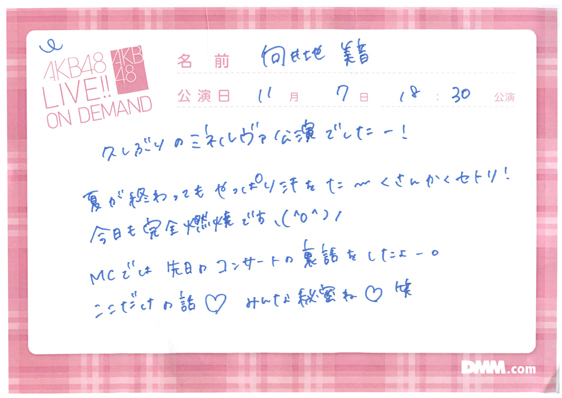 AKB48
LIVE!!
ON DEMAND
AKB
48
名前 向井地 美音
公演日 11月 7日 18:30 公演
久しぶりのミネルヴァ公演でしたー!
夏が終わってもやっぱり汗をた〜くさんかくセトリ!
今日も完全燃焼です\(^o^)/
MCでは先日のコンサートの裏話をしたよー。
ここだけの話♡ みんな秘密ね♡ 笑
DMM.com